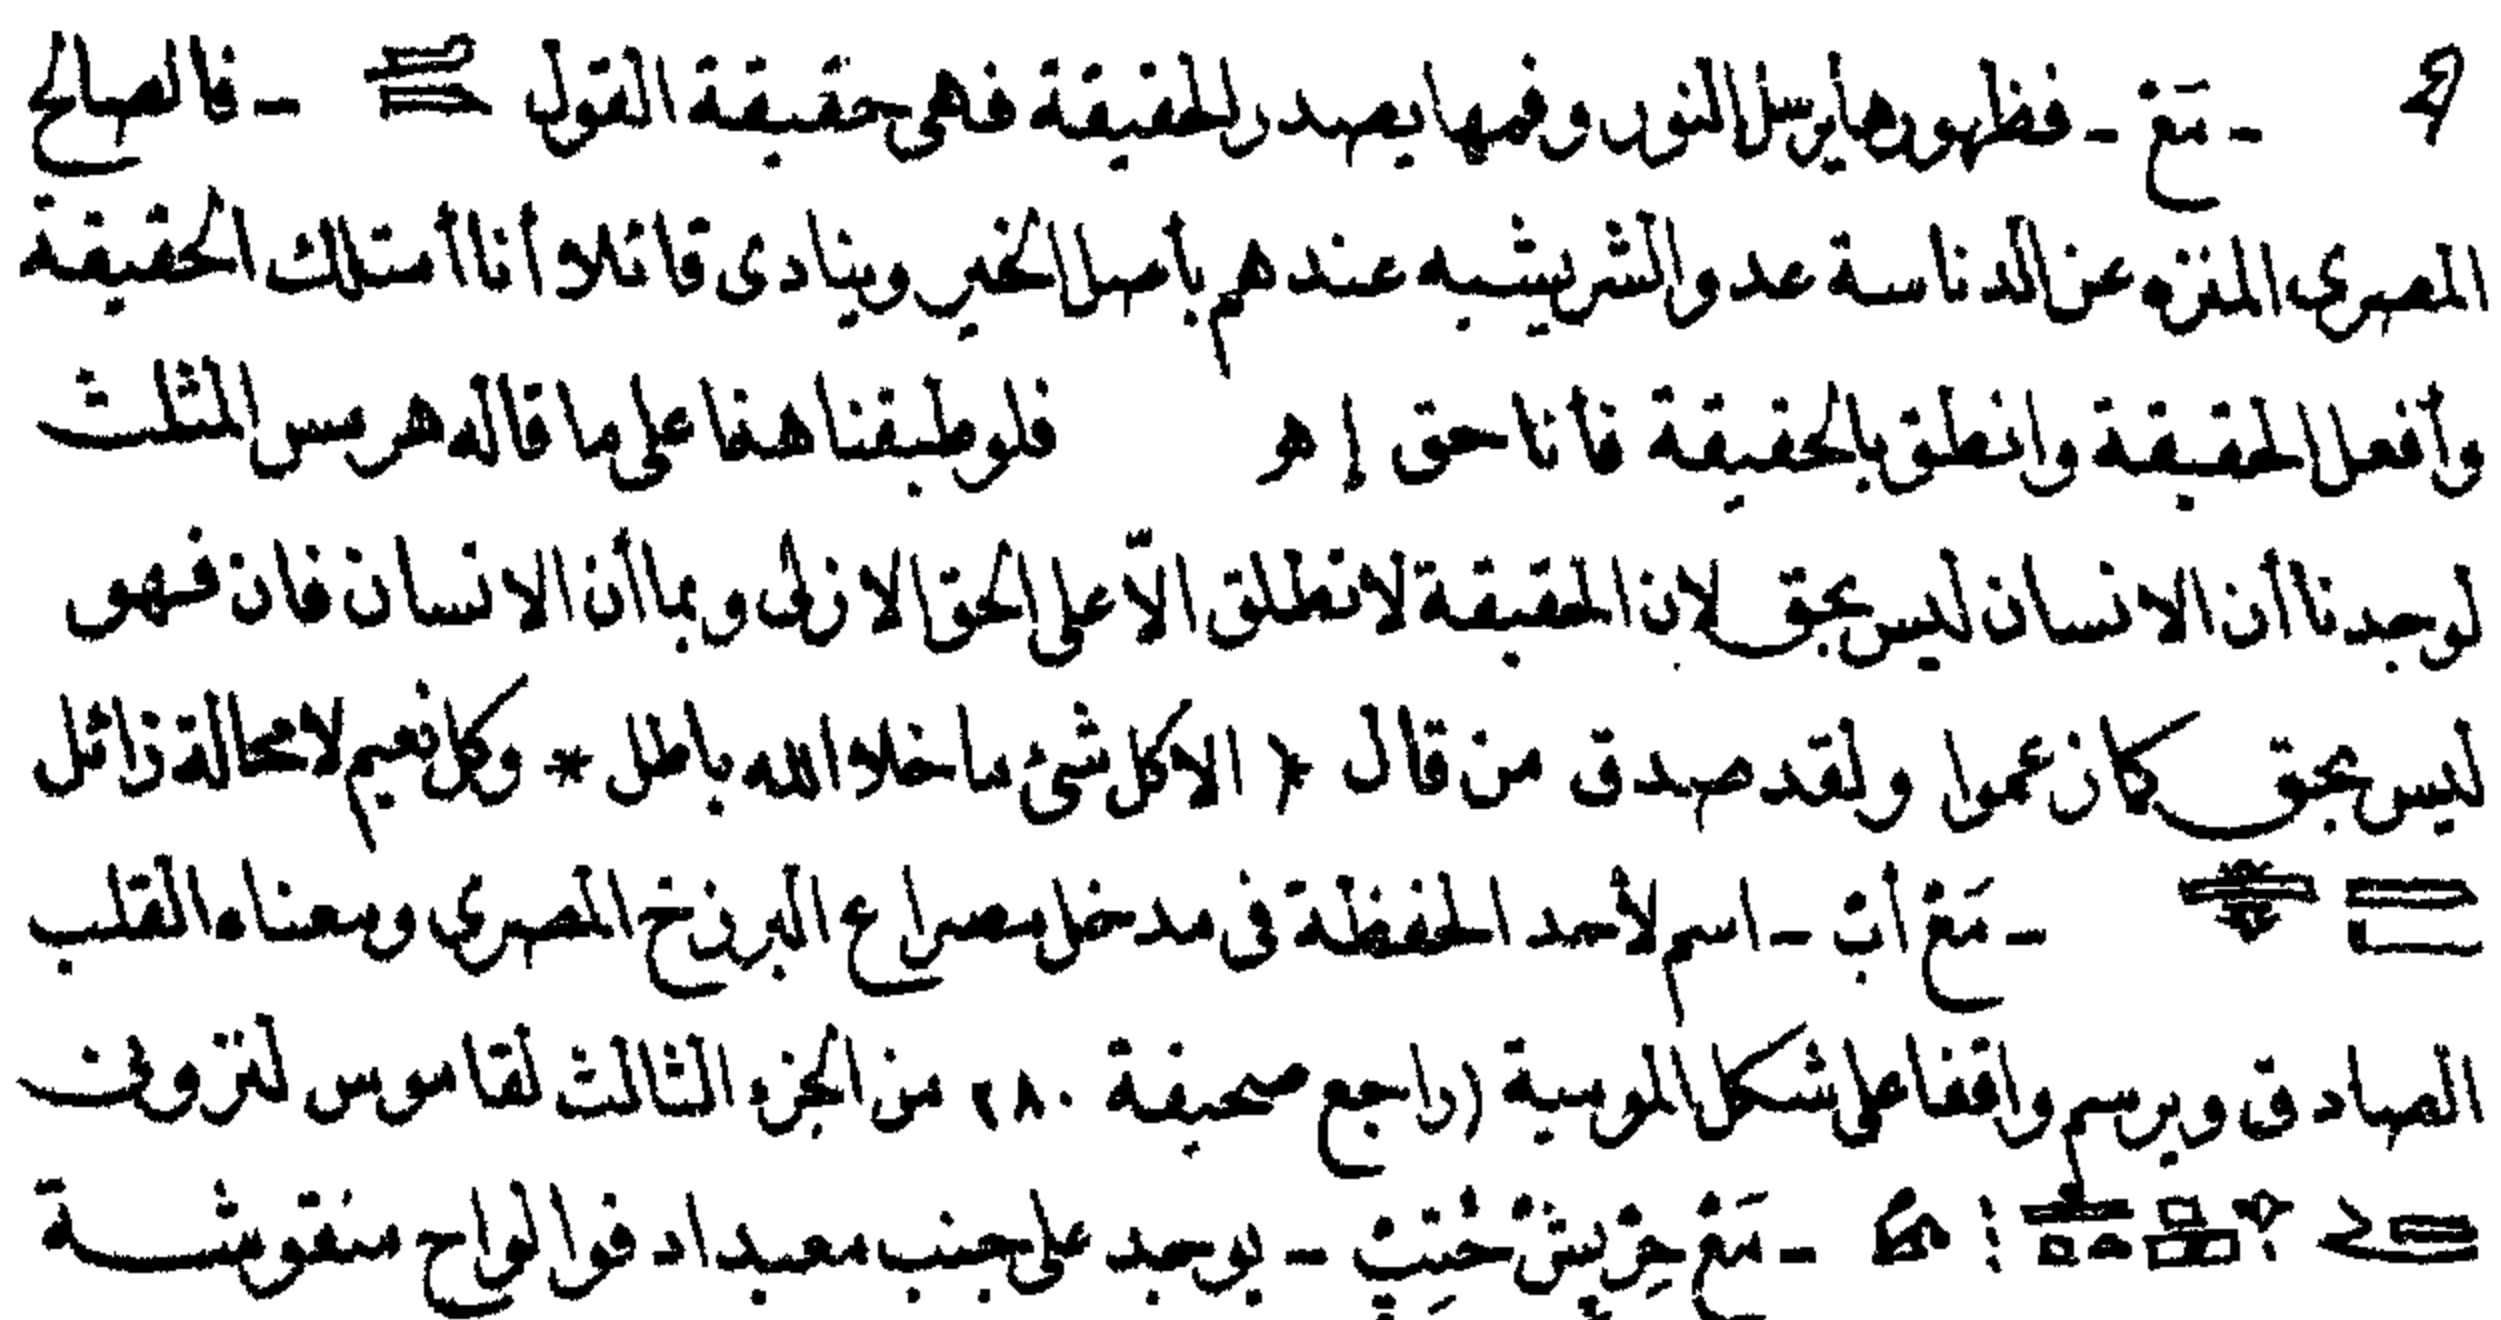 - مَعْ - فظهورها يرسل النور وفمها يصدر للحقيقة فهى حقيقة القول - فالصالح
المصرى المنزه عن الدناسة عدو الشر يشبه عندهم بأصل الخير وينادى قائلا وأنا أمتلك الحقيقة
وأفعل الحقيقة وانطق بالحقيقة فأنا حق إ ه فلو طبقنا هنا على ما قاله هرمس المثلث
لوجدنا أن الانسان ليس بحق لان الحقيقة لا تطلق الاّ على الحق الازلى وبما أن الانسان فان فهو
ليس بحق كما زعموا ولقد صدق من قال ﴿ الا كل شئ ما خلا الله باطل * وكل نعيم لا محالة زائل
- مَعْ أبْ - اسم لأحد الحفظة فى مدخل مصراع البرزخ المصرى ومعناه القلب
الصادق ويرسم واقفا على شكل الموسية (راجع صحيفة ٢٨٠ من الجزء الثالث لقاموس لنزونى
- مَعْ خِرِيشْ خنِتِ - يوجد على جنب معبد ادفو الواح منقوشة